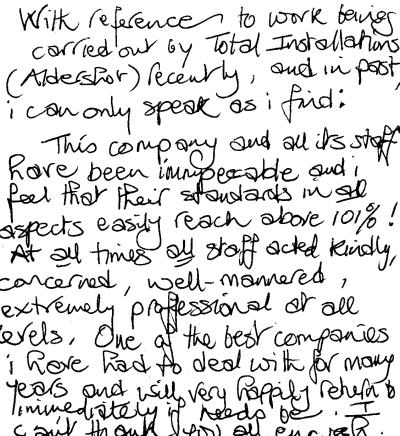 With reference to work being
carried out by Total Installations
(Aldershot) recently, and in past,
i can only speak as i find:
This company and all its staff
have been impeccable and i
feel that their standards in all
aspects easily reach above 101%!
At all times all staff acted kindly,
concerned, well-mannered,
extremely professional at all
levels. One of the best companies
i have had to deal with for many
years and will very happily return to
immediately if needs be. I
can't thank you all enough.